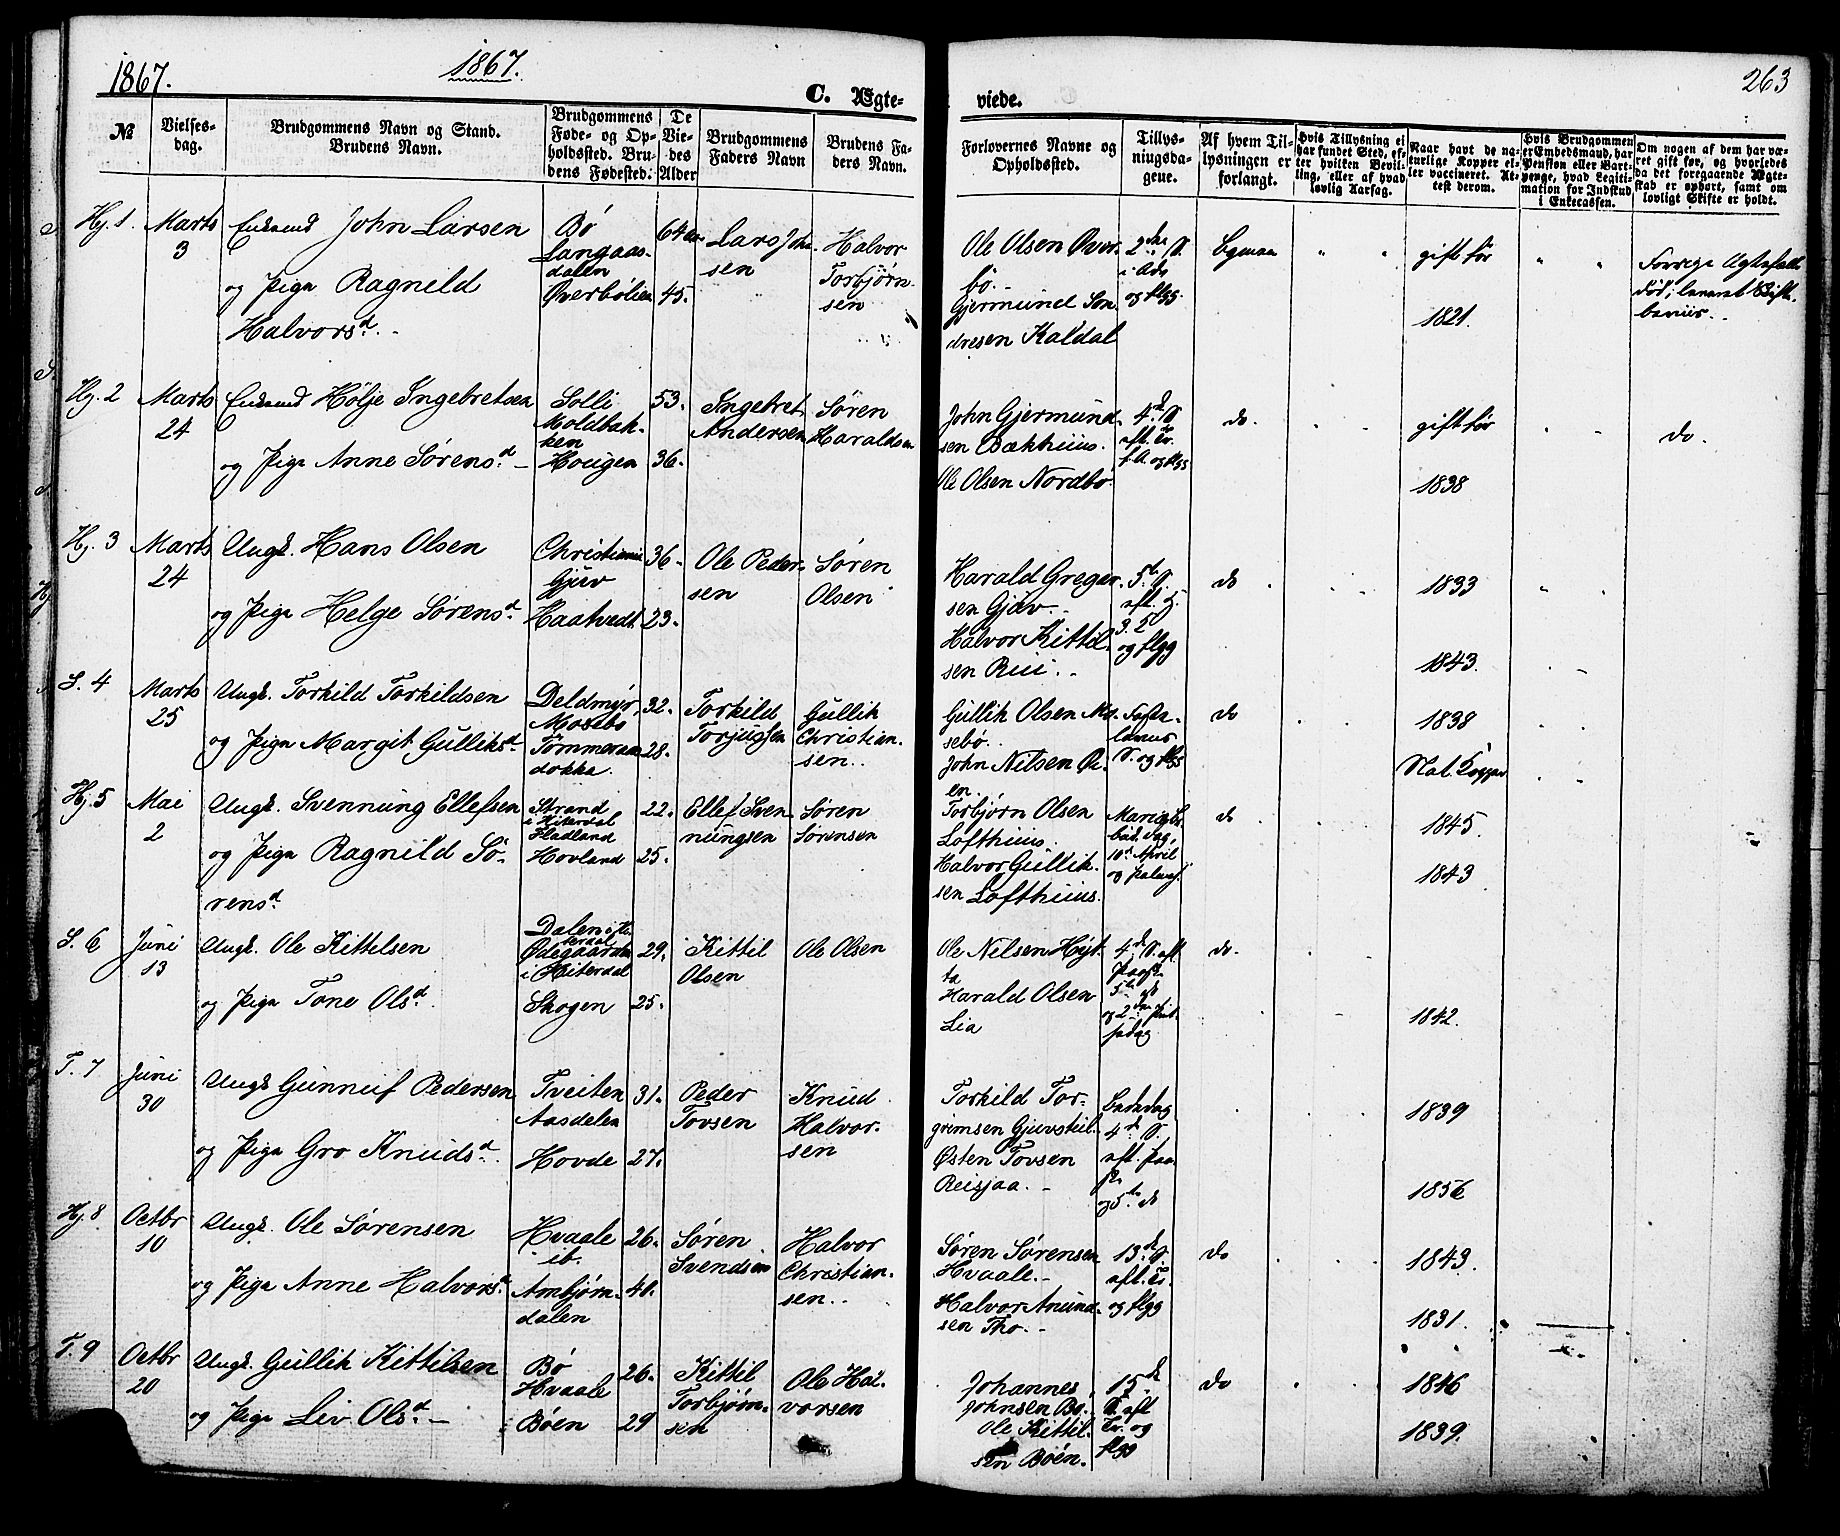 1867.
1867.
263
C. Ægte-
viede.
№
Vielses-
dag.
Brudgommens Navn og Stand.
Brudens Navn.
Brudgommens
Føde- og Op-
holdssted. Bru-
dens Fødested.
De
Vie-
des
Alder
Brudgommens
Faders Navn
Brudens Fa-
ders Navn.
Forlovernes Navne og
Opholdssted.
Tillys-
ningsda-
gene.
Af hvem Til-
lysningen er
forlangt.
Hvis Tillysning ei
har fundet Sted, ef-
ter hvilken Bevil-
ling, eller af hvad
lovlig Aarsag.
Naar havt de na-
turlige Kopper el-
ler vaccineret. At-
test derom.
Hvis Brudgommen
er Embedsmand, har
Pension eller Vart-
penge, hvad Legiti-
mation for Indskud
i Enkecassen.
Om nogen af dem har væ-
ret gift før, og hvorledes
da det foregaaende Ægte-
skab er ophørt, samt om
lovligt Skifte er holdt.
Hj. 1.
Marts
3
Enkemd John Larsen
og Pige Ragnild
Halvorsd.
Bø
Langaas-
dalen
Øverbøeien
64
45.
Lars Joh-
sen
Halvor
Torbjørn-
sen
Ole Olsen Over-
bø.
Gjermund Son-
dresen Kaldal
og flgg.
gift før
1821.
Hj. 2
Marts
24
Enkemd Hølje Ingebretsen
og Pige Anne Sørensd.
Solli
Moldbak-
ken
Hougen
53.
36.
Ingebret
Andersen
Søren
Haraldsen
John Gjermund-
sen Bækhuus.
Ole Olsen Nordbø.
4d. S.
aft. Tr.
og flgg
do.
gift før
1838
do.
Hj. 3
Marts
24
Ungk. Hans Olsen
og Pige Helge Sørensd.
Christiania
Gjuv
Haatvedt
36.
23.
Ole Peder-
sen
Søren
Olsen
Harald Gregar-
sen Gjuv.
Halvor Kittil-
sen Rui.
og flgg
do
1833
1843.
S. 4
Marts
25
Ungk. Torkild Torkildsen
og Pige Margit Gulliksd.
Deldmyr,
Mosebø
Tømmeraas-
dokka.
32.
28.
Torkild
Torjussen
Gullik
Christian-
sen.
Gullik Olsen Mo-
sebø.
John Nilsen Ør-
en.
Faste-
lavns
S. og flgg
do
1838
Nat. Kopper
Hj. 5
Mai
2
Ungk. Svennung Ellefsen
og Pige Ragnild Sø-
rensd.
Strand
i Hiterdal
Fladland
Hovland
22.
25.
Ellef Sven-
nungsen
Søren
Sørensen
Torbjørn Olsen
Lofthuus.
Halvor Gullik-
sen Lofthuus.
Mariæ Be-
bud. dag,
10d. April
og palmes.
do
1845.
1843
S. 6
Juni
13
Ungk. Ole Kittelsen
og Pige Tone Olsd.
Dalen i Hi-
terdal
Ødegaarden
i Hiterdal
Skogen
29.
25.
Kittil
Olsen
Ole Olsen
Ole Nilsen Hyt-
ta
Harald Olsen
Lia
4d. S. aft.
Paaske
do.
1842.
T. 7
Juni
30
Ungk Gunnuf Pedersen
og Pige Gro Knudsd.
Tveiten
Aasdelen
Hovde
31.
27.
Peder
Tovsen
Knud
Halvor-
sen
Torkild Tor-
grimsen Gjuvskil.
Østen Tovsen
Reisjaa.
Bededag
4d. S.
aft. paa-
ske
og 5te do
1839
1856
Hj. 8
Octbr
10
Ungk. Ole Sørensen
og Pige Anne Halvorsd.
Hvaale
ib.
Ambjørn-
dalen
26.
40.
Søren
Svendsen
Halvor
Christian-
sen.
Søren Sørensen
Hvaale.
Halvor Anund-
sen Tho.
13d. S.
aft. Tr.
og flgg
do
1843.
1831.
T. 9
Octbr
20
Ungk. Gullik Kittilsen
og Pige Liv Olsd.
Bø
Hvaale
Bøen
26.
29
Kittil
Torbjørn-
sen
Ole Hal-
vorsen
Johannes
Johnsen Bø.
Ole Kittil-
sen Bøen.
15d.
S. aft
Tr. og
flgg
do
1846
1839.